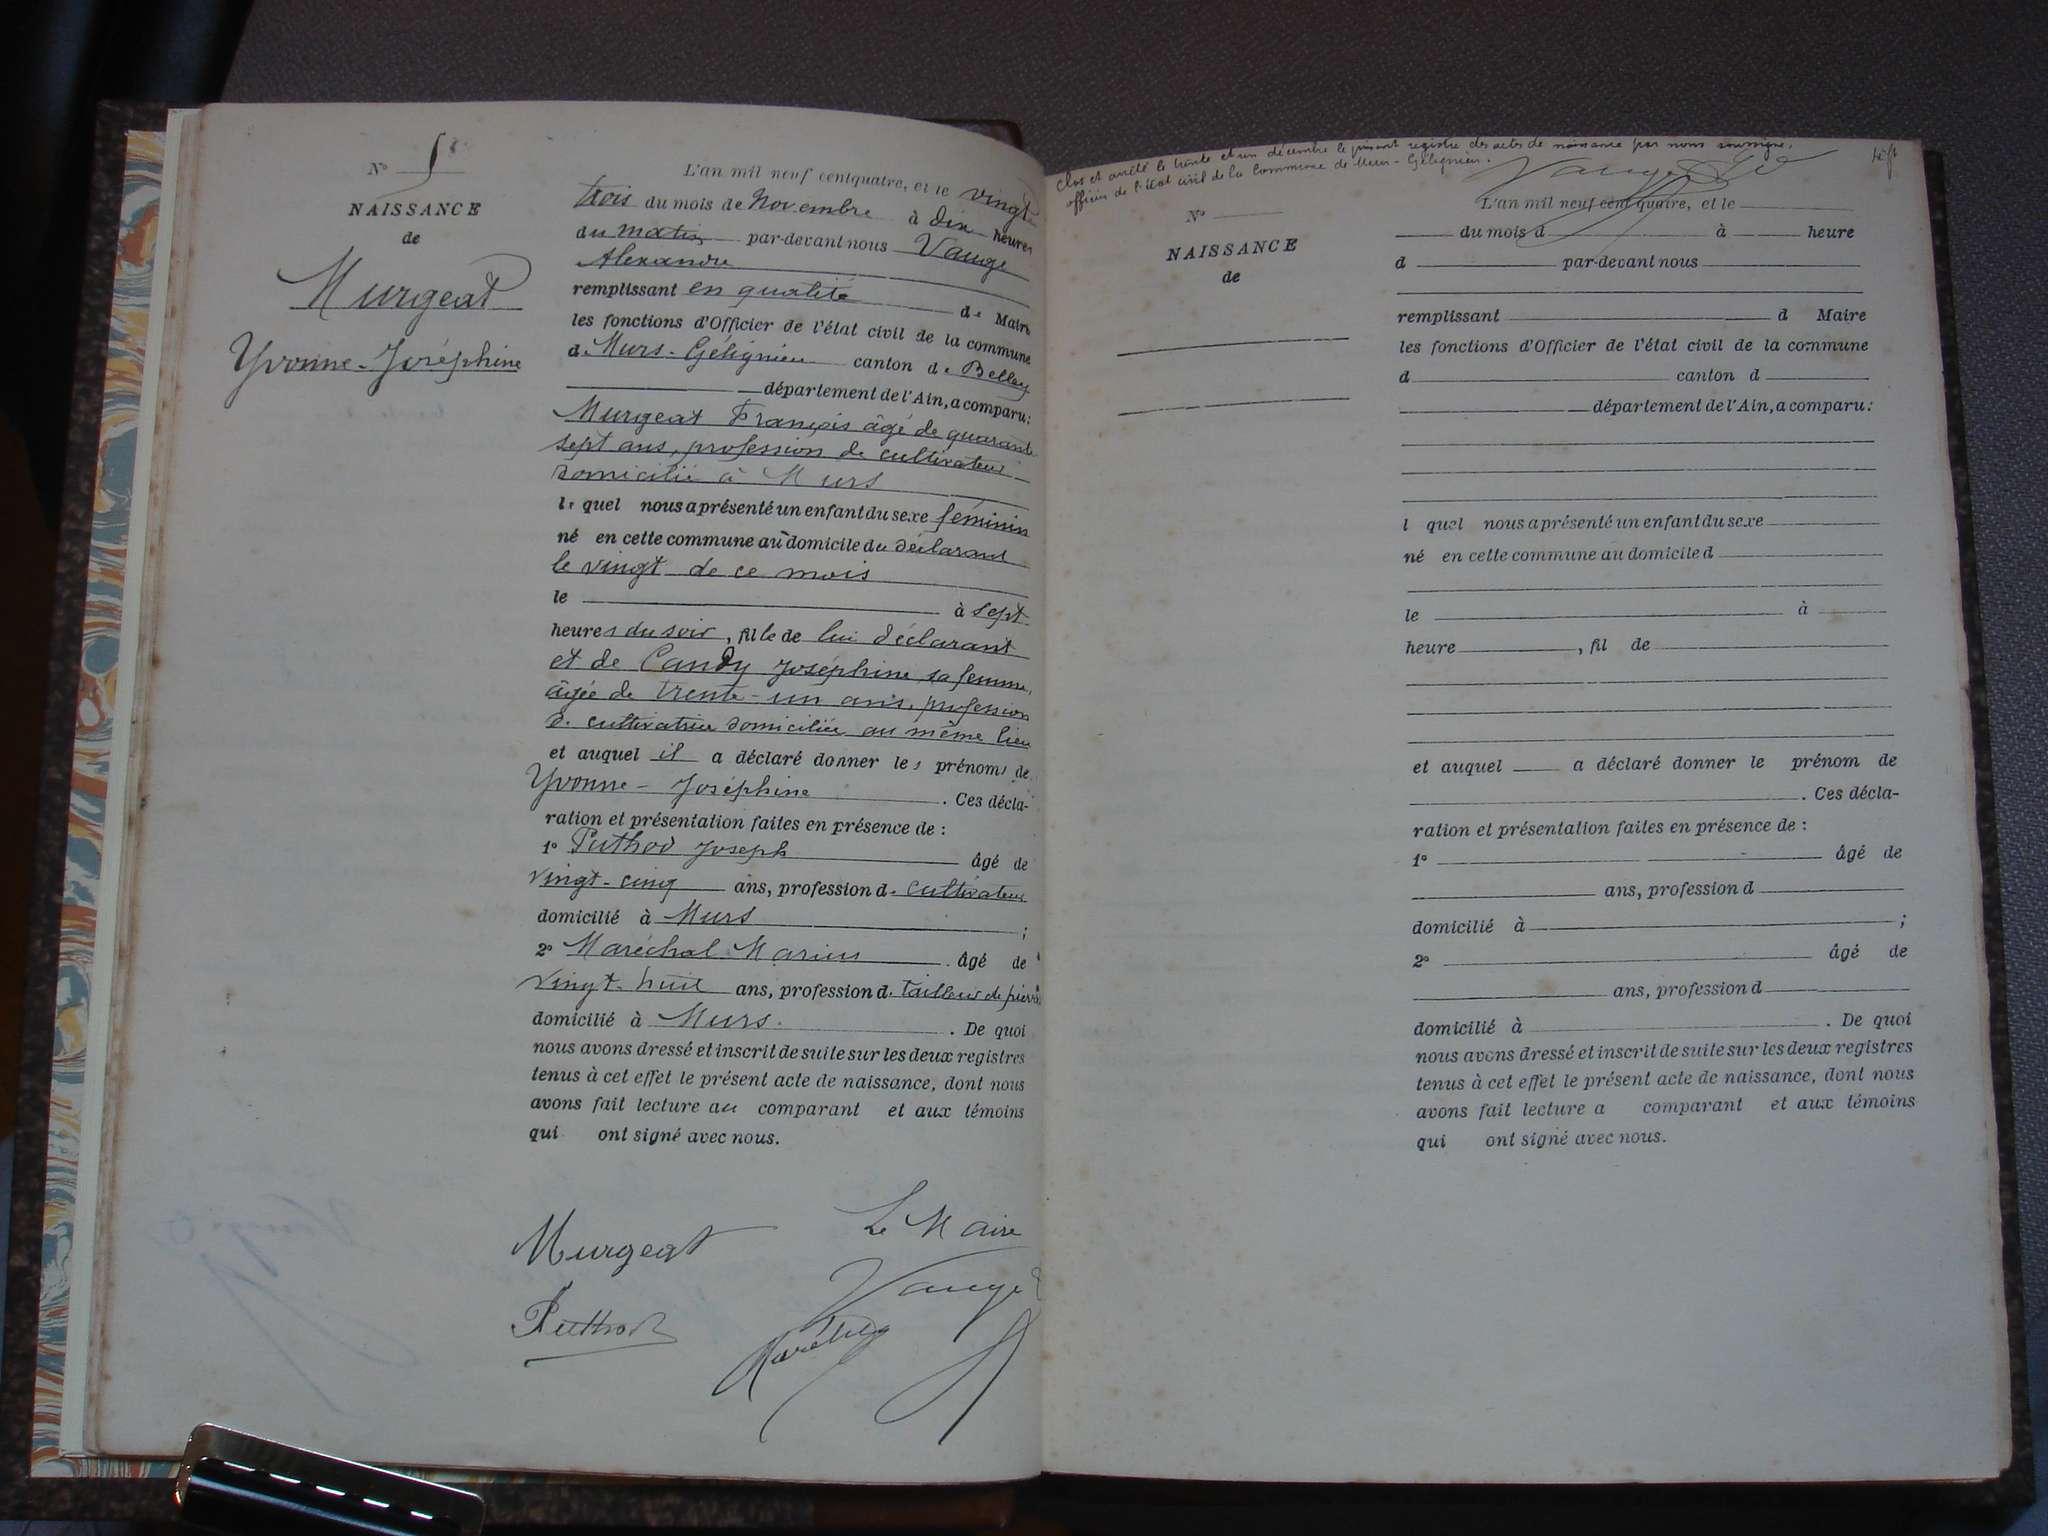 Nº
NAISSANCE
de
Murgeat
Yvonne-Joséphine
L'an mil neuf cent quatre, et le vingt
trois du mois de Novembre à dix heures
du matin par-devant nous Vaugé
Alexandre
remplissant en qualité de Maire
les fonctions d'Officier de l'état civil de la commune
de Murs-Gélignieu canton de Belley
département de l'Ain, a comparu:
Murgeat François âgé de quarante
sept ans, profession de cultivateur
domicilié à Murs
le quel nous a présenté un enfant du sexe féminin
né en cette commune au domicile du déclarant
le vingt de ce mois
le à sept
heures du soir, fille de lui déclarant
et de Candy Joséphine sa femme,
âgée de trente-un ans, profession
de cultivatrice domiciliée au même lieu
et auquel il a déclaré donner les prénoms de
Yvonne-Joséphine. Ces décla-
ration et présentation faites en présence de :
1º Puthod Joseph âgé de
vingt-cinq ans, profession de cultivateur
domicilié à Murs ;
2º Maréchal Marius âgé de
vingt-huit ans, profession de tailleur de pierre
domicilié à Murs. De quoi
nous avons dressé et inscrit de suite sur les deux registres
tenus à cet effet le présent acte de naissance, dont nous
avons fait lecture au comparant et aux témoins
qui ont signé avec nous.
Murgeat
Le Maire
Puthod
Vaugé
Clos et arrêté le trente et un décembre le présent registre des actes de naissance par nous soussigné,
officier de l'état civil de la Commune de Murs-Gélignieu.
Vaugé
Nº
NAISSANCE
de
L'an mil neuf cent quatre, et le
du mois d à heure
d par-devant nous
remplissant d Maire
les fonctions d'Officier de l'état civil de la commune
d canton d
département de l'Ain, a comparu:
l quel nous a présenté un enfant du sexe
né en cette commune au domicile d
le à
heure , fil de
et auquel a déclaré donner le prénom de
. Ces décla-
ration et présentation faites en présence de :
1º âgé de
ans, profession d
domicilié à ;
2º âgé de
ans, profession d
domicilié à . De quoi
nous avons dressé et inscrit de suite sur les deux registres
tenus à cet effet le présent acte de naissance, dont nous
avons fait lecture a comparant et aux témoins
qui ont signé avec nous.